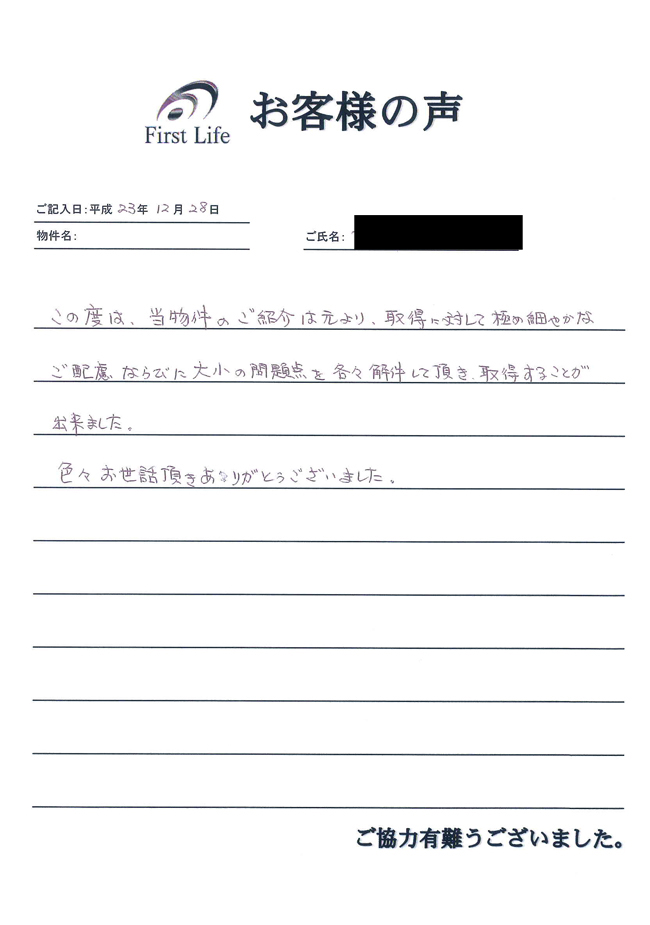 First Life
お客様の声
ご記入日:平成 23年 12月 28日
物件名:
ご氏名:
この度は、当物件のご紹介は元より、取得に対して極め細やかな
ご配慮ならびに大小の問題点を各々解件して頂き、取得することが
出来ました。
色々お世話頂きありがとうございました。
ご協力有難うございました。